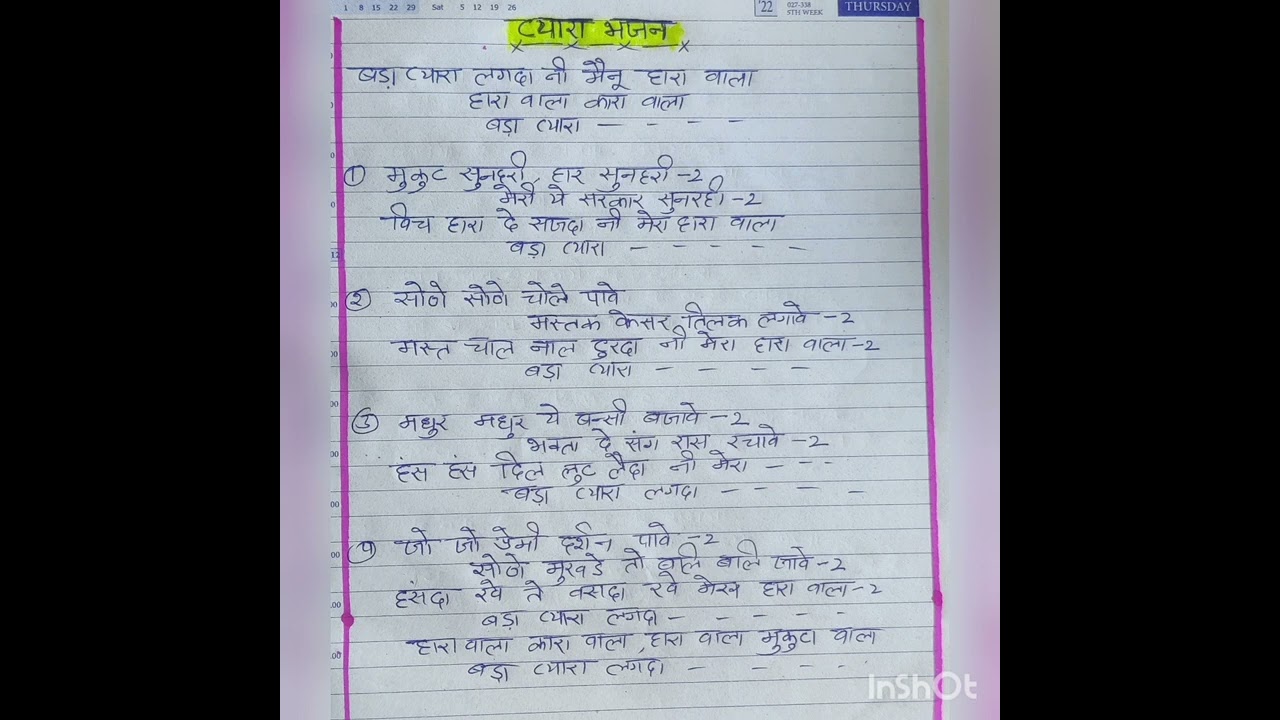 1 8 15 22 29 Sat 5 12 19 26
'22 027-338 5TH WEEK THURSDAY
प्यारा भजन
बड़ा प्यारा लगदा नी मैनू हारा वाला
हारा वाला कारा वाला
बड़ा प्यारा — — — —
① मुकुट सुनहरी, हार सुनहरी -2
मेरी ये सरकार सुनरही -2
विच हारा दे सजदा नी मेरा हारा वाला
बड़ा प्यारा — — — — —
② सोणे सोणे चोले पावे
मस्तक केसर तिलक लगावे -2
मस्त चाल नाल टुरदा नी मेरा हारा वाला -2
बड़ा प्यारा — — — —
③ मधुर मधुर ये बन्सी बजावे -2
भक्ता दे संग रास रचावे -2
हंस हंस दिल लुट लैदा नी मेरा — - -
बड़ा प्यारा लगदा — — — —
④ जो जो प्रेमी दर्शन पावे -2
सोणे मुखडे तो बलि बलि जावे -2
हंसदा रवे ते वसदा रवे हारा वाला -2
बड़ा प्यारा लगदा — — — — —
हारा वाला कारा वाला, हारा वाला मुकुटा वाला
बड़ा प्यारा लगदा — — — —
InShOt